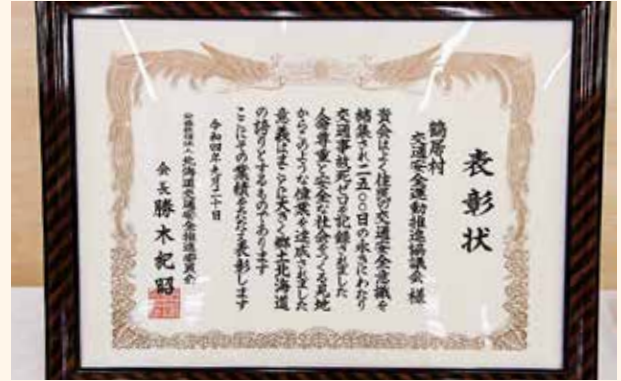 表彰状
鶴居村
交通安全運動推進協議会 様
貴会はよく住民の交通安全意識を
結集され二五〇〇日の永きにわたり
交通事故死ゼロを記録されました
人命尊重と安全な社会をつくる見地
からこのような偉業を達成されました
意義はまことに大きく郷土北海道
の誇りとするものであります
ここにその業績をたたえ表彰します
令和四年九月二十日
公益社団法人北海道交通安全推進委員会
会長 勝木紀昭